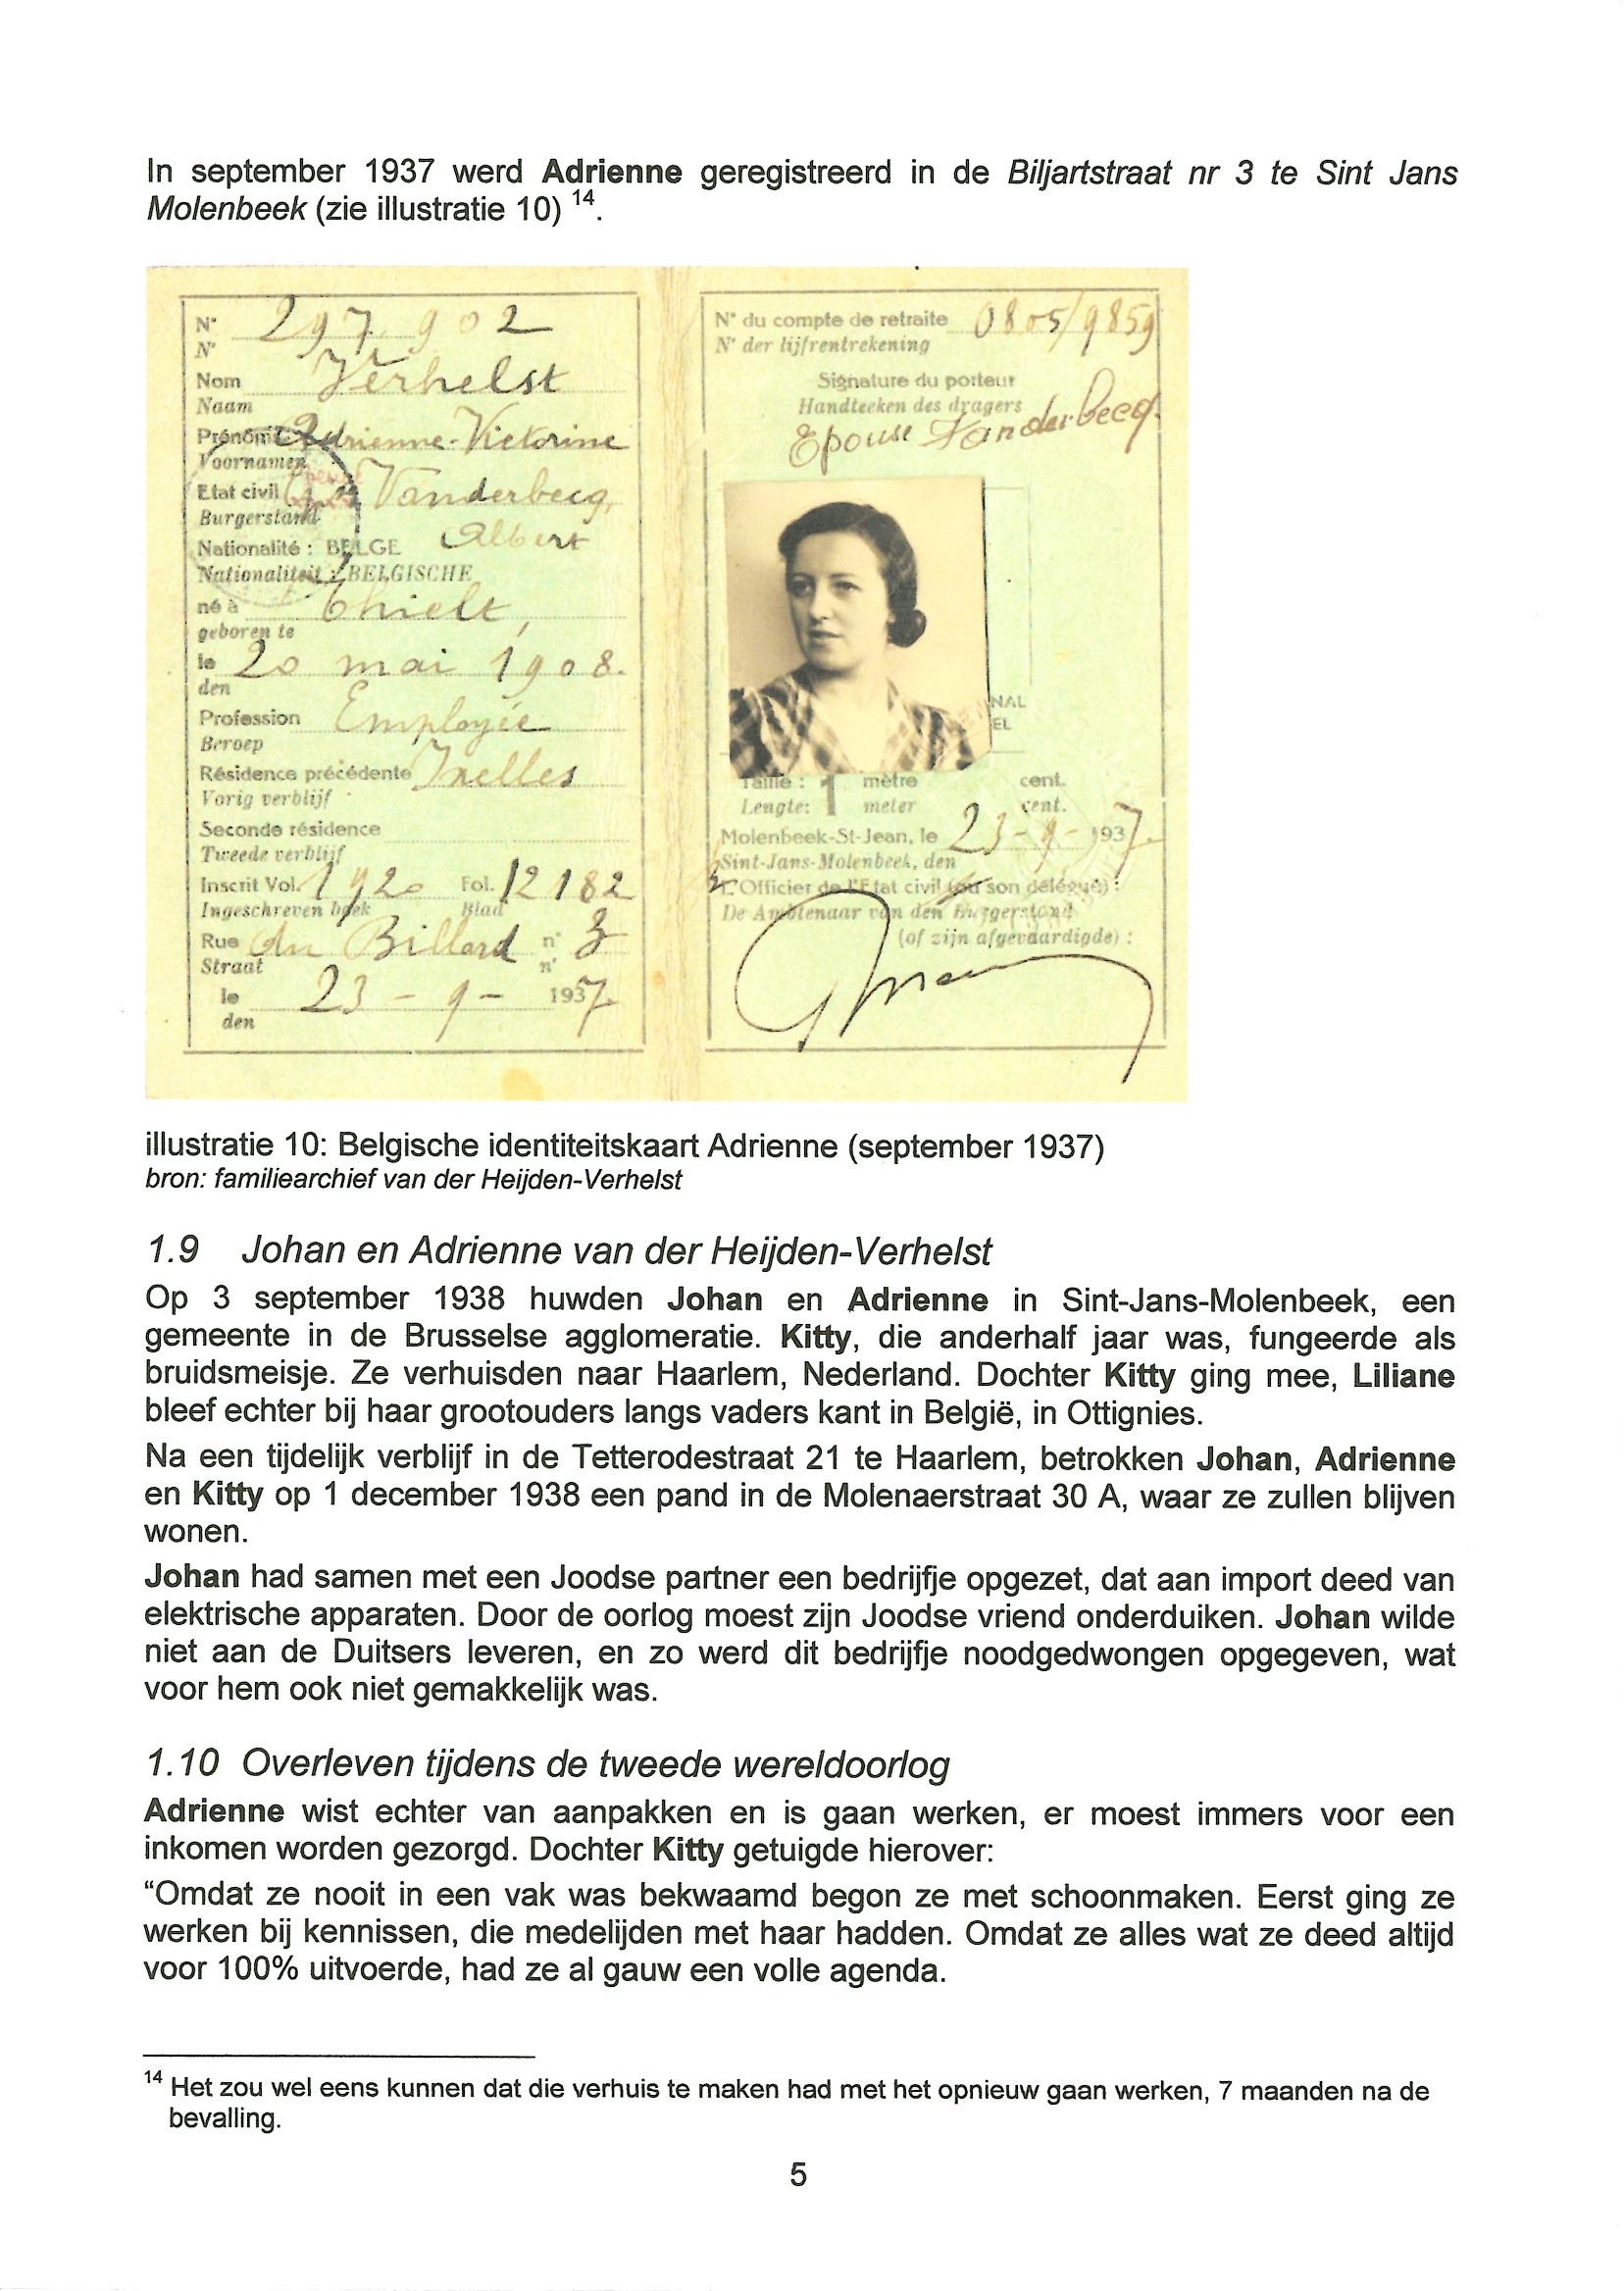 In september 1937 werd Adrienne geregistreerd in de Biljartstraat nr 3 te Sint Jans
Molenbeek (zie illustratie 10) 14.
N° 297.902
N°
Nom Verhelst
Naam
Prénoms Adrienne-Victorine
Voornamen
Etat civil Vanderbecq,
Burgerstand
Albert
Nationalité : BELGE
Nationaliteit : BELGISCHE
né à Thielt,
geboren te
le 20 mai 1908.
den
Profession Employée
Beroep
Résidence précédente Ixelles
Vorig verblijf
Seconde résidence
Tweede verblijf
Inscrit Vol. 1920 Fol. 12182
Ingeschreven boek Blad
Rue du Billard n° 3
Straat n°
le 23-9-1937
den
N° du compte de retraite 0805/9859
N° der lijfrentrekening
Signature du porteur
Handteeken des dragers
Epouse Vanderbecq.
NAL
EL
Taille : 1 mètre cent.
Lengte: meter cent.
Molenbeek-St-Jean, le 23-9-1937.
Sint-Jans-Molenbeek, den
L'Officier de l'Etat civil (ou son délégué) :
De Ambtenaar van den Burgerstand
(of zijn afgevaardigde) :
illustratie 10: Belgische identiteitskaart Adrienne (september 1937)
bron: familiearchief van der Heijden-Verhelst
1.9 Johan en Adrienne van der Heijden-Verhelst
Op 3 september 1938 huwden Johan en Adrienne in Sint-Jans-Molenbeek, een
gemeente in de Brusselse agglomeratie. Kitty, die anderhalf jaar was, fungeerde als
bruidsmeisje. Ze verhuisden naar Haarlem, Nederland. Dochter Kitty ging mee, Liliane
bleef echter bij haar grootouders langs vaders kant in België, in Ottignies.
Na een tijdelijk verblijf in de Tetterodestraat 21 te Haarlem, betrokken Johan, Adrienne
en Kitty op 1 december 1938 een pand in de Molenaerstraat 30 A, waar ze zullen blijven
wonen.
Johan had samen met een Joodse partner een bedrijfje opgezet, dat aan import deed van
elektrische apparaten. Door de oorlog moest zijn Joodse vriend onderduiken. Johan wilde
niet aan de Duitsers leveren, en zo werd dit bedrijfje noodgedwongen opgegeven, wat
voor hem ook niet gemakkelijk was.
1.10 Overleven tijdens de tweede wereldoorlog
Adrienne wist echter van aanpakken en is gaan werken, er moest immers voor een
inkomen worden gezorgd. Dochter Kitty getuigde hierover:
“Omdat ze nooit in een vak was bekwaamd begon ze met schoonmaken. Eerst ging ze
werken bij kennissen, die medelijden met haar hadden. Omdat ze alles wat ze deed altijd
voor 100% uitvoerde, had ze al gauw een volle agenda.
14 Het zou wel eens kunnen dat die verhuis te maken had met het opnieuw gaan werken, 7 maanden na de
bevalling.
5